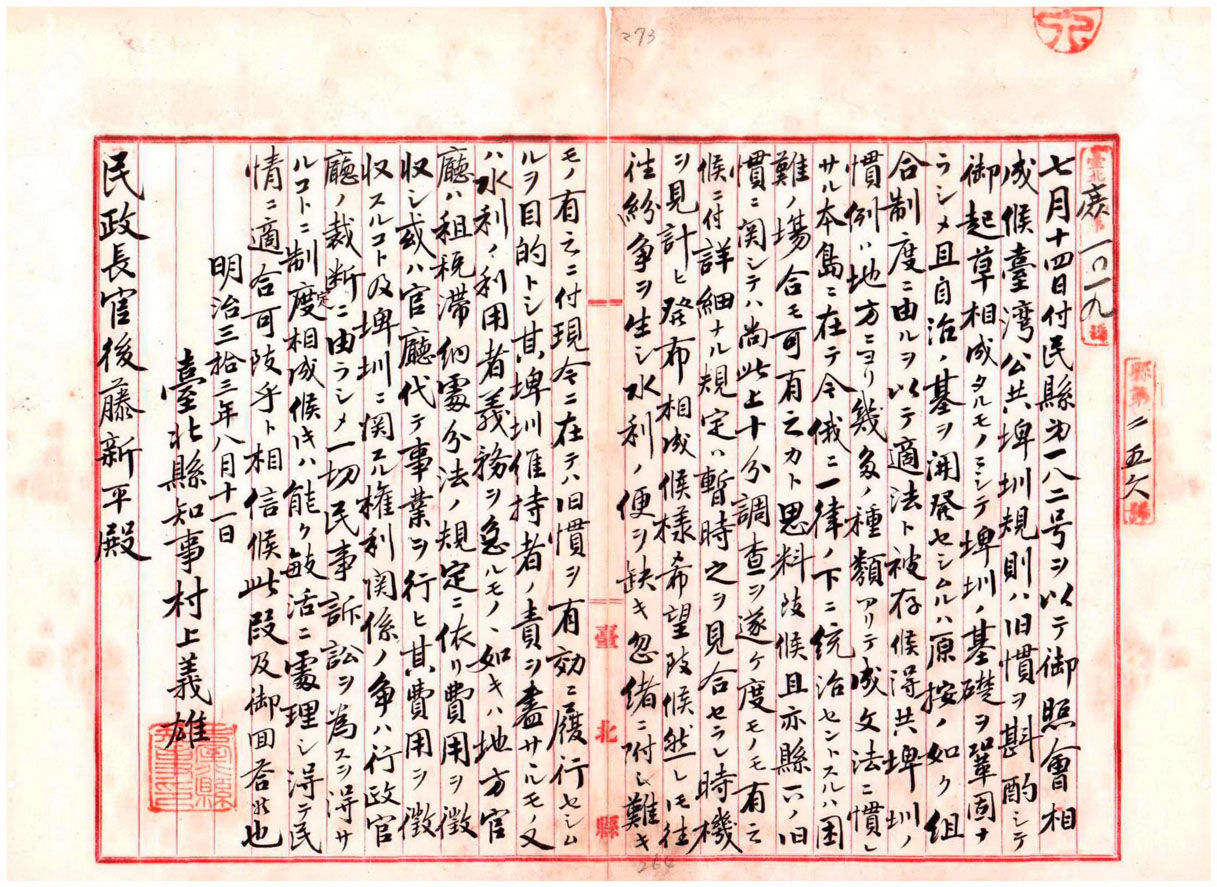 273
臺北庶第一〇一九號
縣第二五六號
七月十四日付民縣第一八二号ヲ以テ御照會相
成候臺湾公共埤圳規則ハ旧慣ヲ斟酌シテ
御起草相成タルモノニシテ埤圳ノ基礎ヲ鞏固ナ
ラシメ且自治ノ基ヲ開発セシムルハ原按ノ如ク組
合制度ニ由ルヲ以テ適法ト被存候得共埤圳ノ
慣例ハ地方ニヨリ幾多ノ種類アリテ成文法ニ慣レ
サル本島ニ在テ今俄ニ一律ノ下ニ統治セントスルハ困
難ノ場合モ可有之カト思料致候且亦縣下ノ旧
慣ニ関シテハ尚此上十分調査ヲ遂ケ度モノモ有之
候ニ付詳細ナル規定ハ暫時之ヲ見合セラレ時機
ヲ見計ヒ発布相成候様希望致候然レモ往
往紛争ヲ生シ水利ノ便ヲ缺キ忽緒ニ附シ難キ
臺北縣
モノ有之ニ付現今ニ在テハ旧慣ヲ有効ニ履行セシム
ルヲ目的トシ其埤圳維持者ノ責ヲ盡サルモノ又
ハ水利ノ利用者義務ヲ怠ルモノヽ如キハ地方官
廳ハ租税滞納處分法ノ規定ニ依リ費用ヲ徴
収シ或ハ官廳代テ事業ヲ行ヒ其費用ヲ徴
収スルコト及埤圳ニ関スル權利関係ノ争ハ行政官
廳ノ裁断ニ由ラシメ一切民事訴訟ヲ為スヲ得サ
ルコトニ制度相定成候キハ能ク敏活ニ處理シ得テ民
情ニ適合可致乎ト相信候此段及御回答候也
明治三拾三年八月十一日
臺北縣知事村上義雄
臺北縣知事印
民政長官後藤新平殿
264